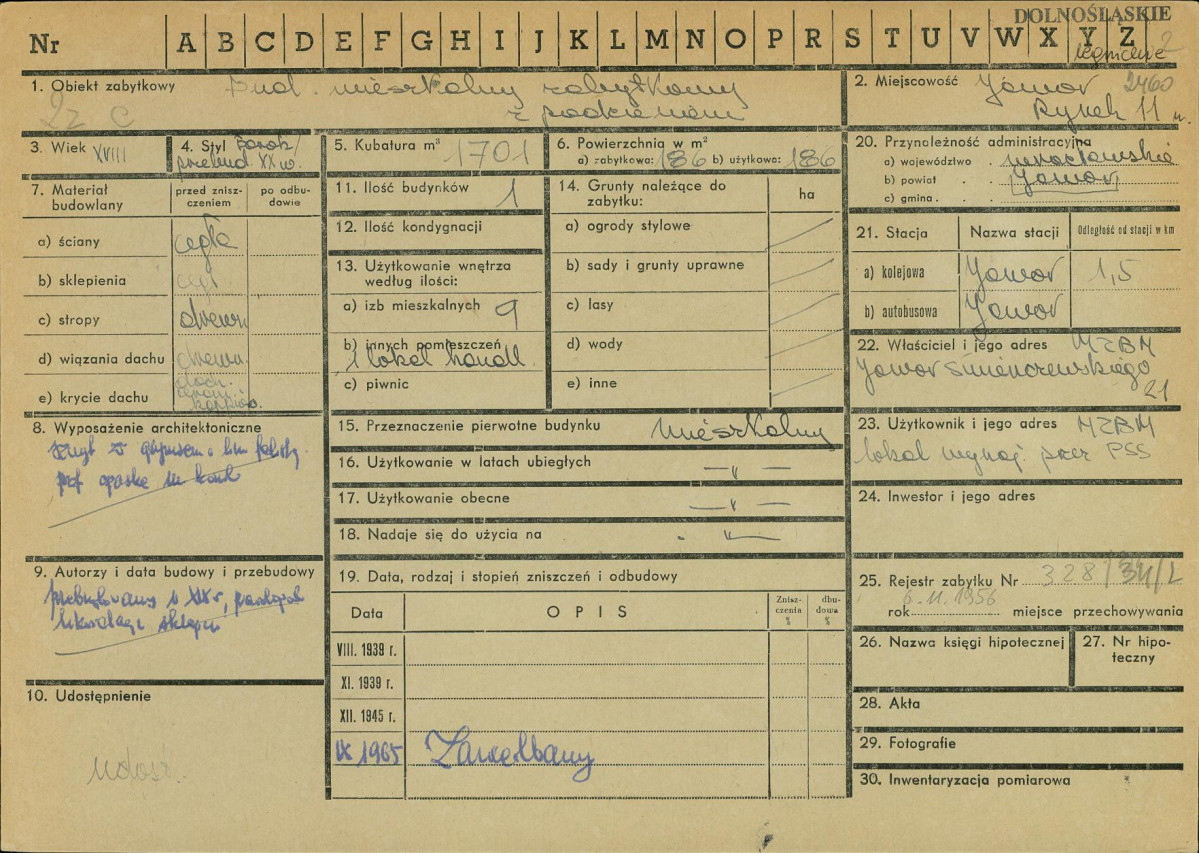 DOLNOŚLĄSKIE
Nr A B C D E F G H I J K L M N O P R S T U V W X Y Z
legnickie 2
1. Obiekt zabytkowy Bud. mieszkalny zabytkowy
z podcieniem
2. Miejscowość Jawor 2460
Rynek 11
3. Wiek XVIII
4. Styl Barok/
przebud. XX w.
5. Kubatura m³ 1701
6. Powierzchnia w m²
a) zabytkowa: 186 b) użytkowa: 186
7. Materiał budowlany
przed zniszczeniem
po odbudowie
a) ściany cegła
b) sklepienia ceg.
c) stropy drewn.
d) wiązania dachu drewn.
e) krycie dachu dach.
8. Wyposażenie architektoniczne
9. Autorzy i data budowy i przebudowy
przebudowany w XIX r.,
10. Udostępnienie
Udost.
11. Ilość budynków 1
12. Ilość kondygnacji
13. Użytkowanie wnętrza
według ilości:
a) izb mieszkalnych 9
b) innych pomieszczeń
1 lokal handl.
c) piwnic
14. Grunty należące do
zabytku:
ha
a) ogrody stylowe
b) sady i grunty uprawne
c) lasy
d) wody
e) inne
15. Przeznaczenie pierwotne budynku mieszkalny
16. Użytkowanie w latach ubiegłych —„—
17. Użytkowanie obecne —„—
18. Nadaje się do użycia na —„—
19. Data, rodzaj i stopień zniszczeń i odbudowy
Data
OPIS
Zniszczenia %
dbudowa %
VIII. 1939 r.
XI. 1939 r.
XII. 1945 r.
IX 1965 Zamieszkany
20. Przynależność administracyjna
a) województwo wrocławskie
b) powiat Jawor
c) gmina
21. Stacja
Nazwa stacji
Odległość od stacji w km
a) kolejowa Jawor 1,5
b) autobusowa Jawor
22. Właściciel i jego adres MZBM
Jawor
21
23. Użytkownik i jego adres MZBM
lokal wynaj. przez PSS
24. Inwestor i jego adres
25. Rejestr zabytku Nr 328/34/L
6.11.1956
rok miejsce przechowywania
26. Nazwa księgi hipotecznej
27. Nr hipoteczny
28. Akta
29. Fotografie
30. Inwentaryzacja pomiarowa